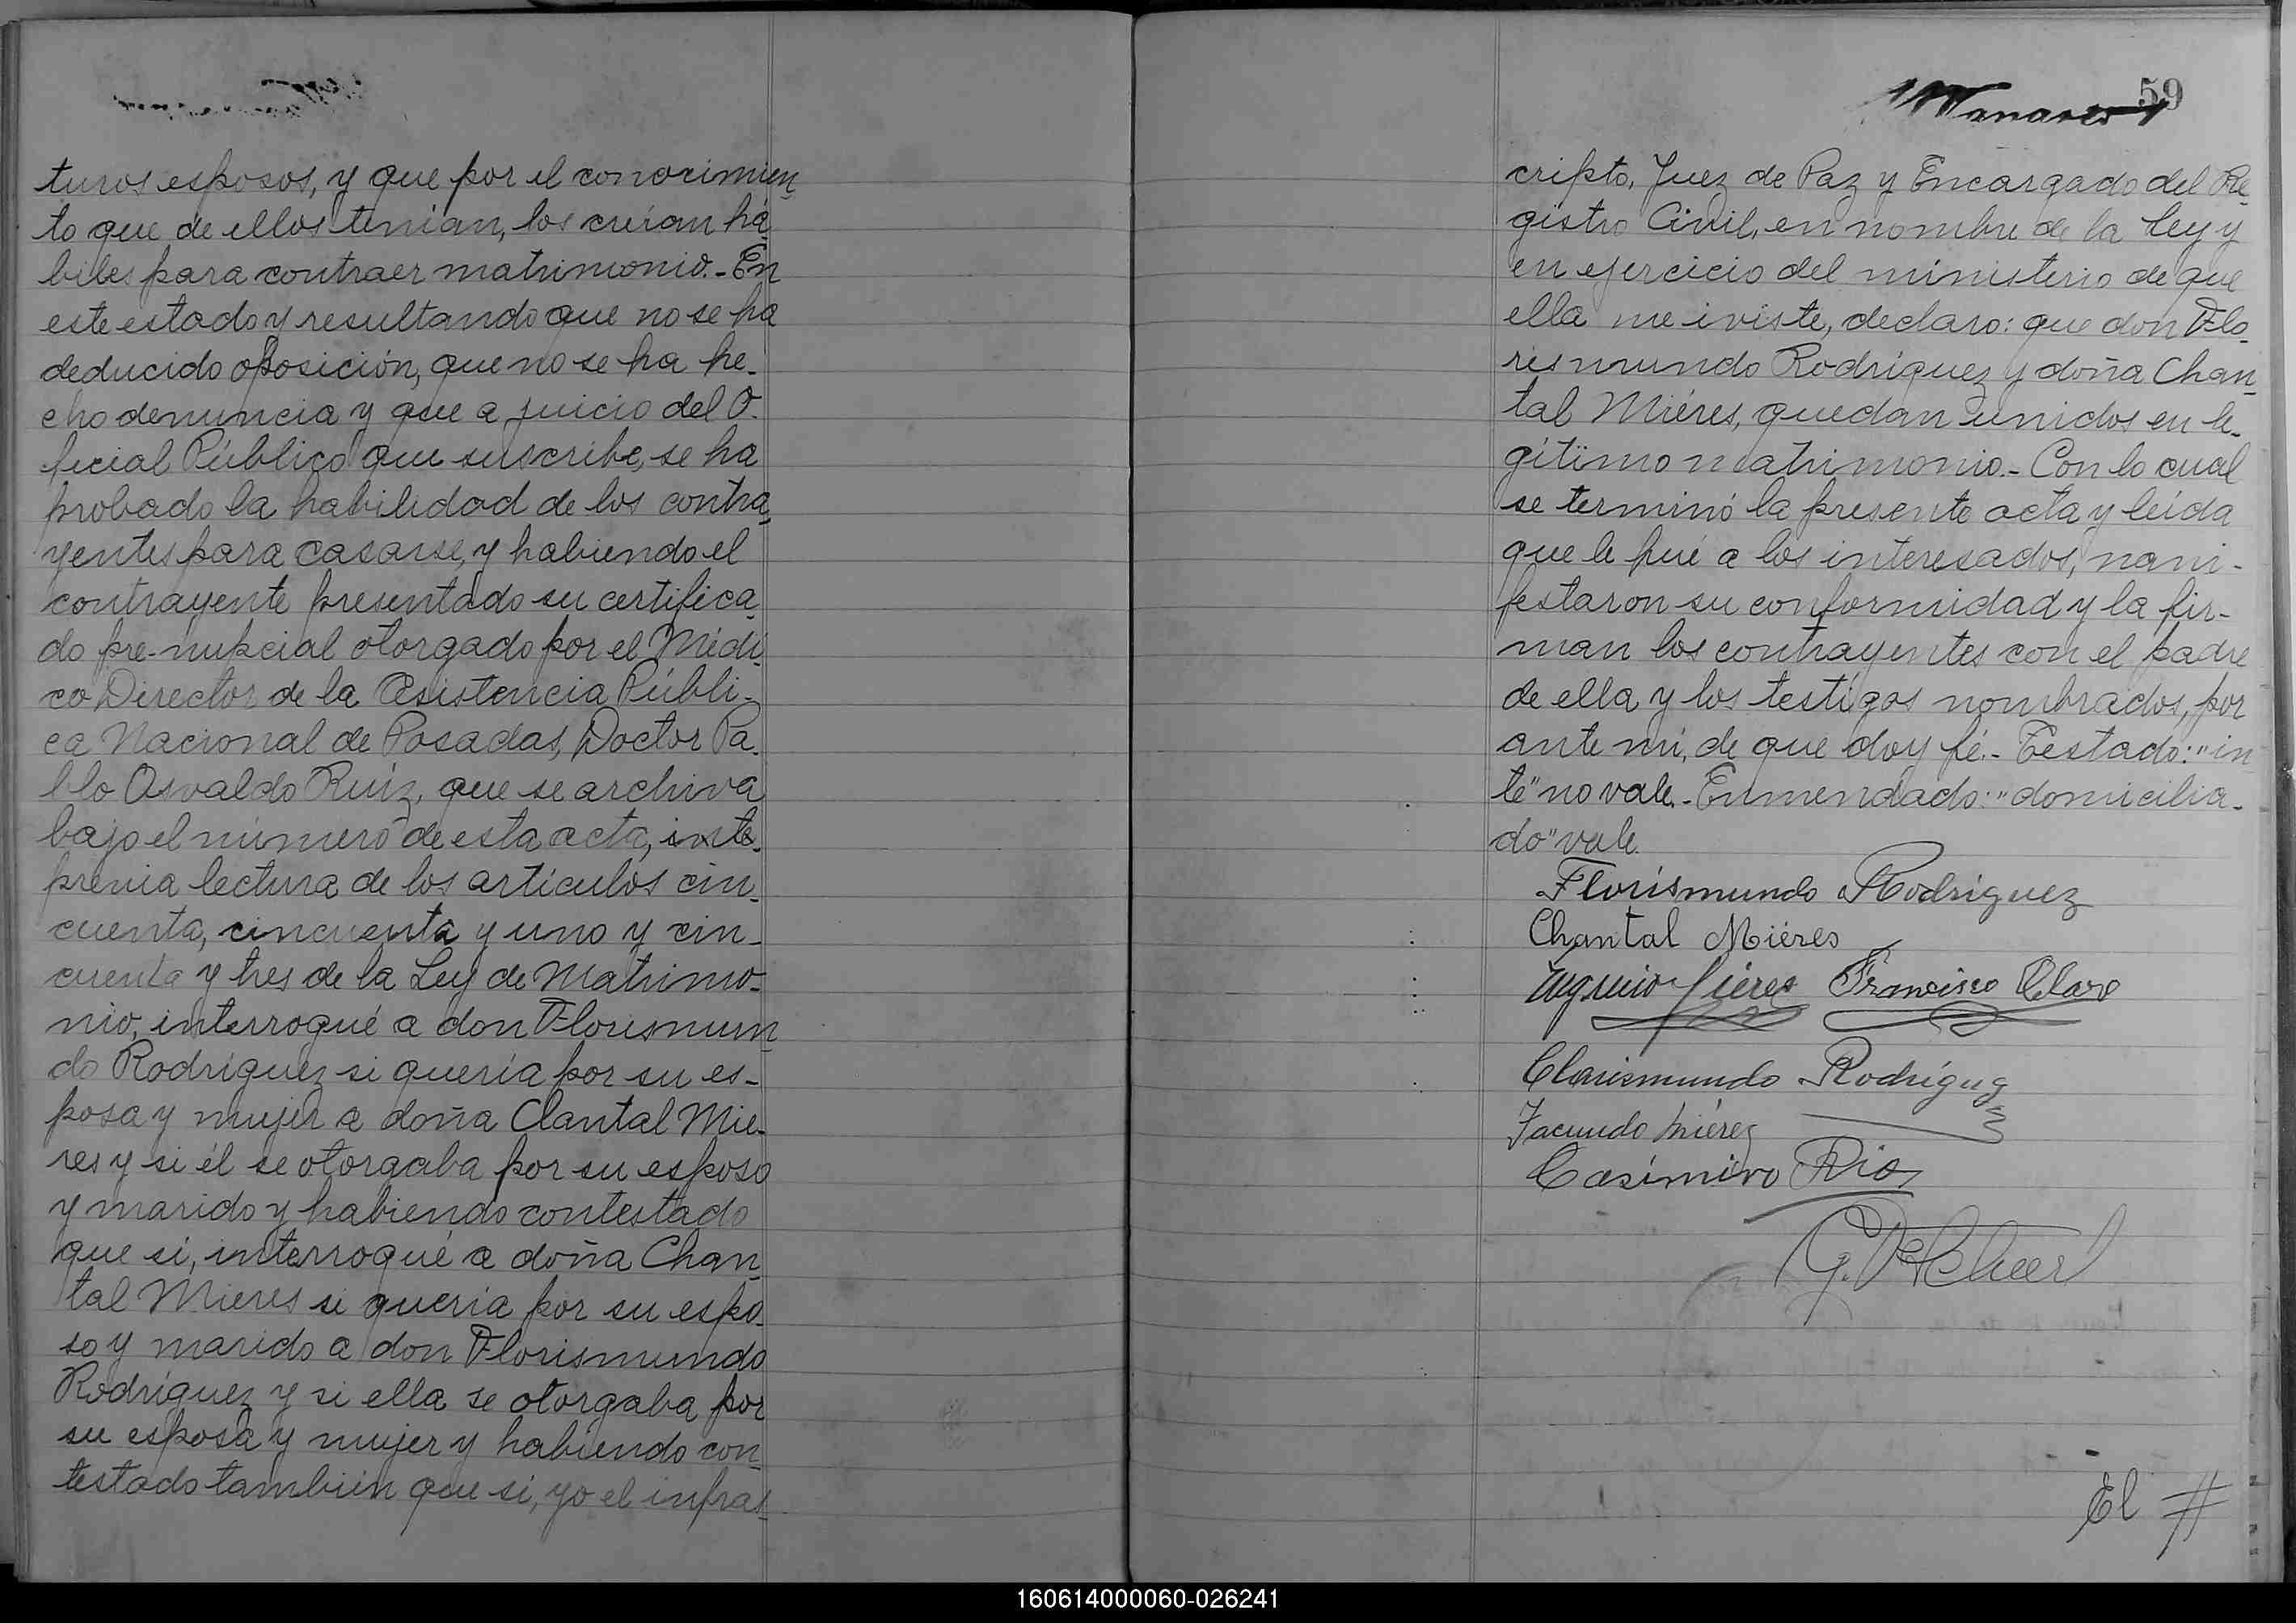 turos esposos, y que por el conocimien
to que de ellos tenían, los creían há
biles para contraer matrimonio.- En
este estado y resultando que no se ha
deducido oposición, que no se ha he-
cho denuncia y que a juicio del O-
ficial Público que suscribe, se ha
probado la habilidad de los contra
yentes para casarse, y habiendo el
contrayente presentado su certifica
do pre-nupcial otorgado por el Médi
co Director de la Asistencia Públi-
ca Nacional de Posadas, Doctor Pa-
blo Osvaldo Ruíz, que se archiva
bajo el número de esta acta, inte-
previa lectura de los artículos cin-
cuenta, cincuenta y uno y cin-
cuenta y tres de la Ley de Matrimo-
nio, interrogué a don Florismun
do Rodríguez si quería por su es-
posa y mujer a doña Clantal Mie-
res y si él se otorgaba por su esposo
y marido y habiendo contestado
que si, interrogué a doña Chan
tal Mieres si quería por su espo-
so y marido a don Florismundo
Rodríguez y si ella se otorgaba por
su esposa y mujer y habiendo con
testado también que si, yo el infras
59
cripto, Juez de Paz y Encargado del Re
gistro Civil, en nombre de la Ley y
en ejercicio del ministerio de que
ella me iviste, declaro: que don Flo-
rismundo Rodríguez y doña Chan
tal Miéres, quedan unidos en le-
gítimo matrimonio.- Con lo cual
se terminó la presente acta y leída
que le fué a los interesados, nani-
festaron su conformidad y la fir-
man los contrayentes con el padre
de ella y los testigos nombrados, por
ante mí, de que doy fé.- Testado: "in
te" no vale.- Enmendado: "domicilia-
do" vale.
Florismundo Rodriguez
Chantal Miéres
Francisco Claro
Clarismundo Rodriguez
Facundo Miéres
Casimiro Rios
El #
160614000060-026241